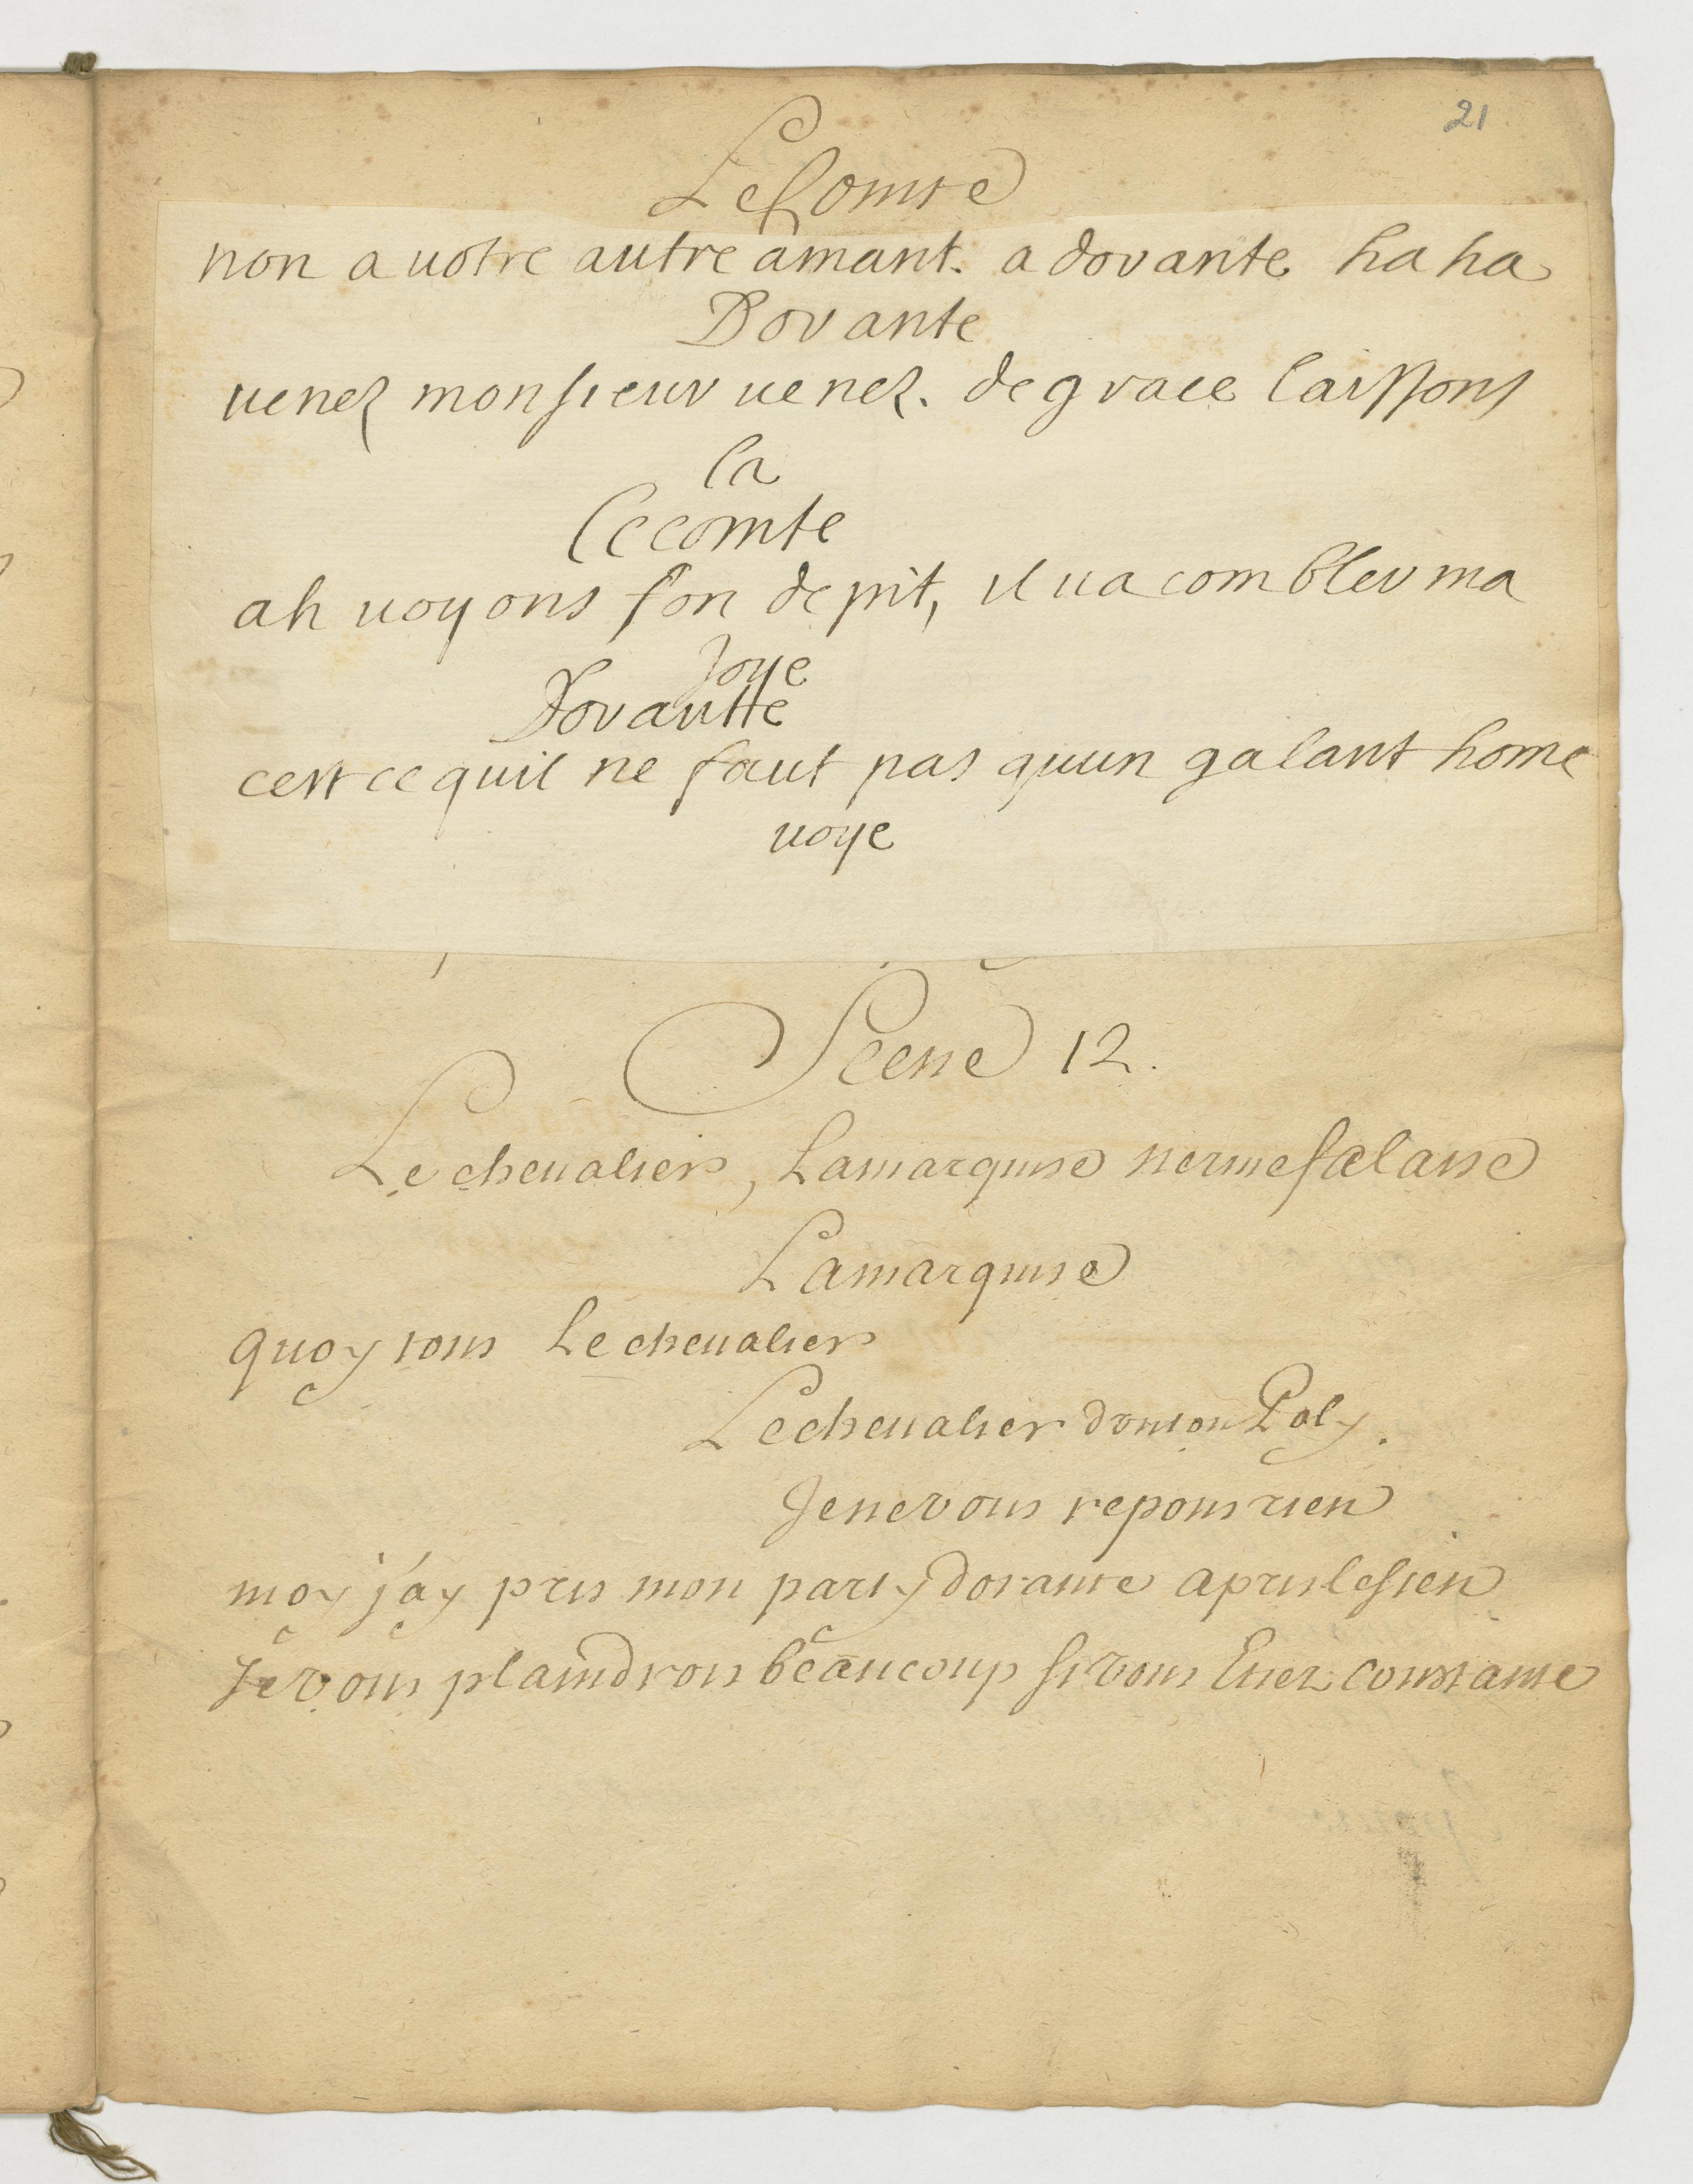 21
Le Comte
non a uotre autre amant. a dorante ha ha
Dorante
uenez monsieur uenez. de grace laissons
la
le comte
ah uoyons son depit, il ua combler ma
joye
Dorantte
cest ce quil ne faut pas quun galant home
uoye
Scene 12.
Le cheualier, La marquise nerine
La marquise
quoy vous Le cheualier
Le cheualier d'un ton Poly.
Je ne vous repons rien
moy j'ay pris mon party dorante a pris le sien
Je vous plaindrois beaucoup si vous Etiez constante